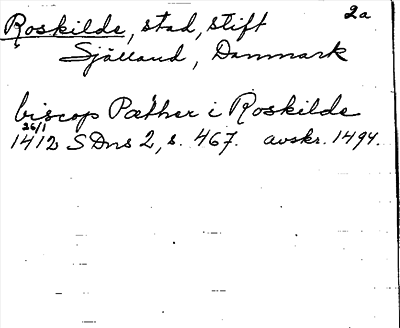 Roskilde, stad, stift 2a
Själland, Danmark
biscop Pæther i Roskilde
26/1
1412 SDns 2, s. 467. avskr. 1494.